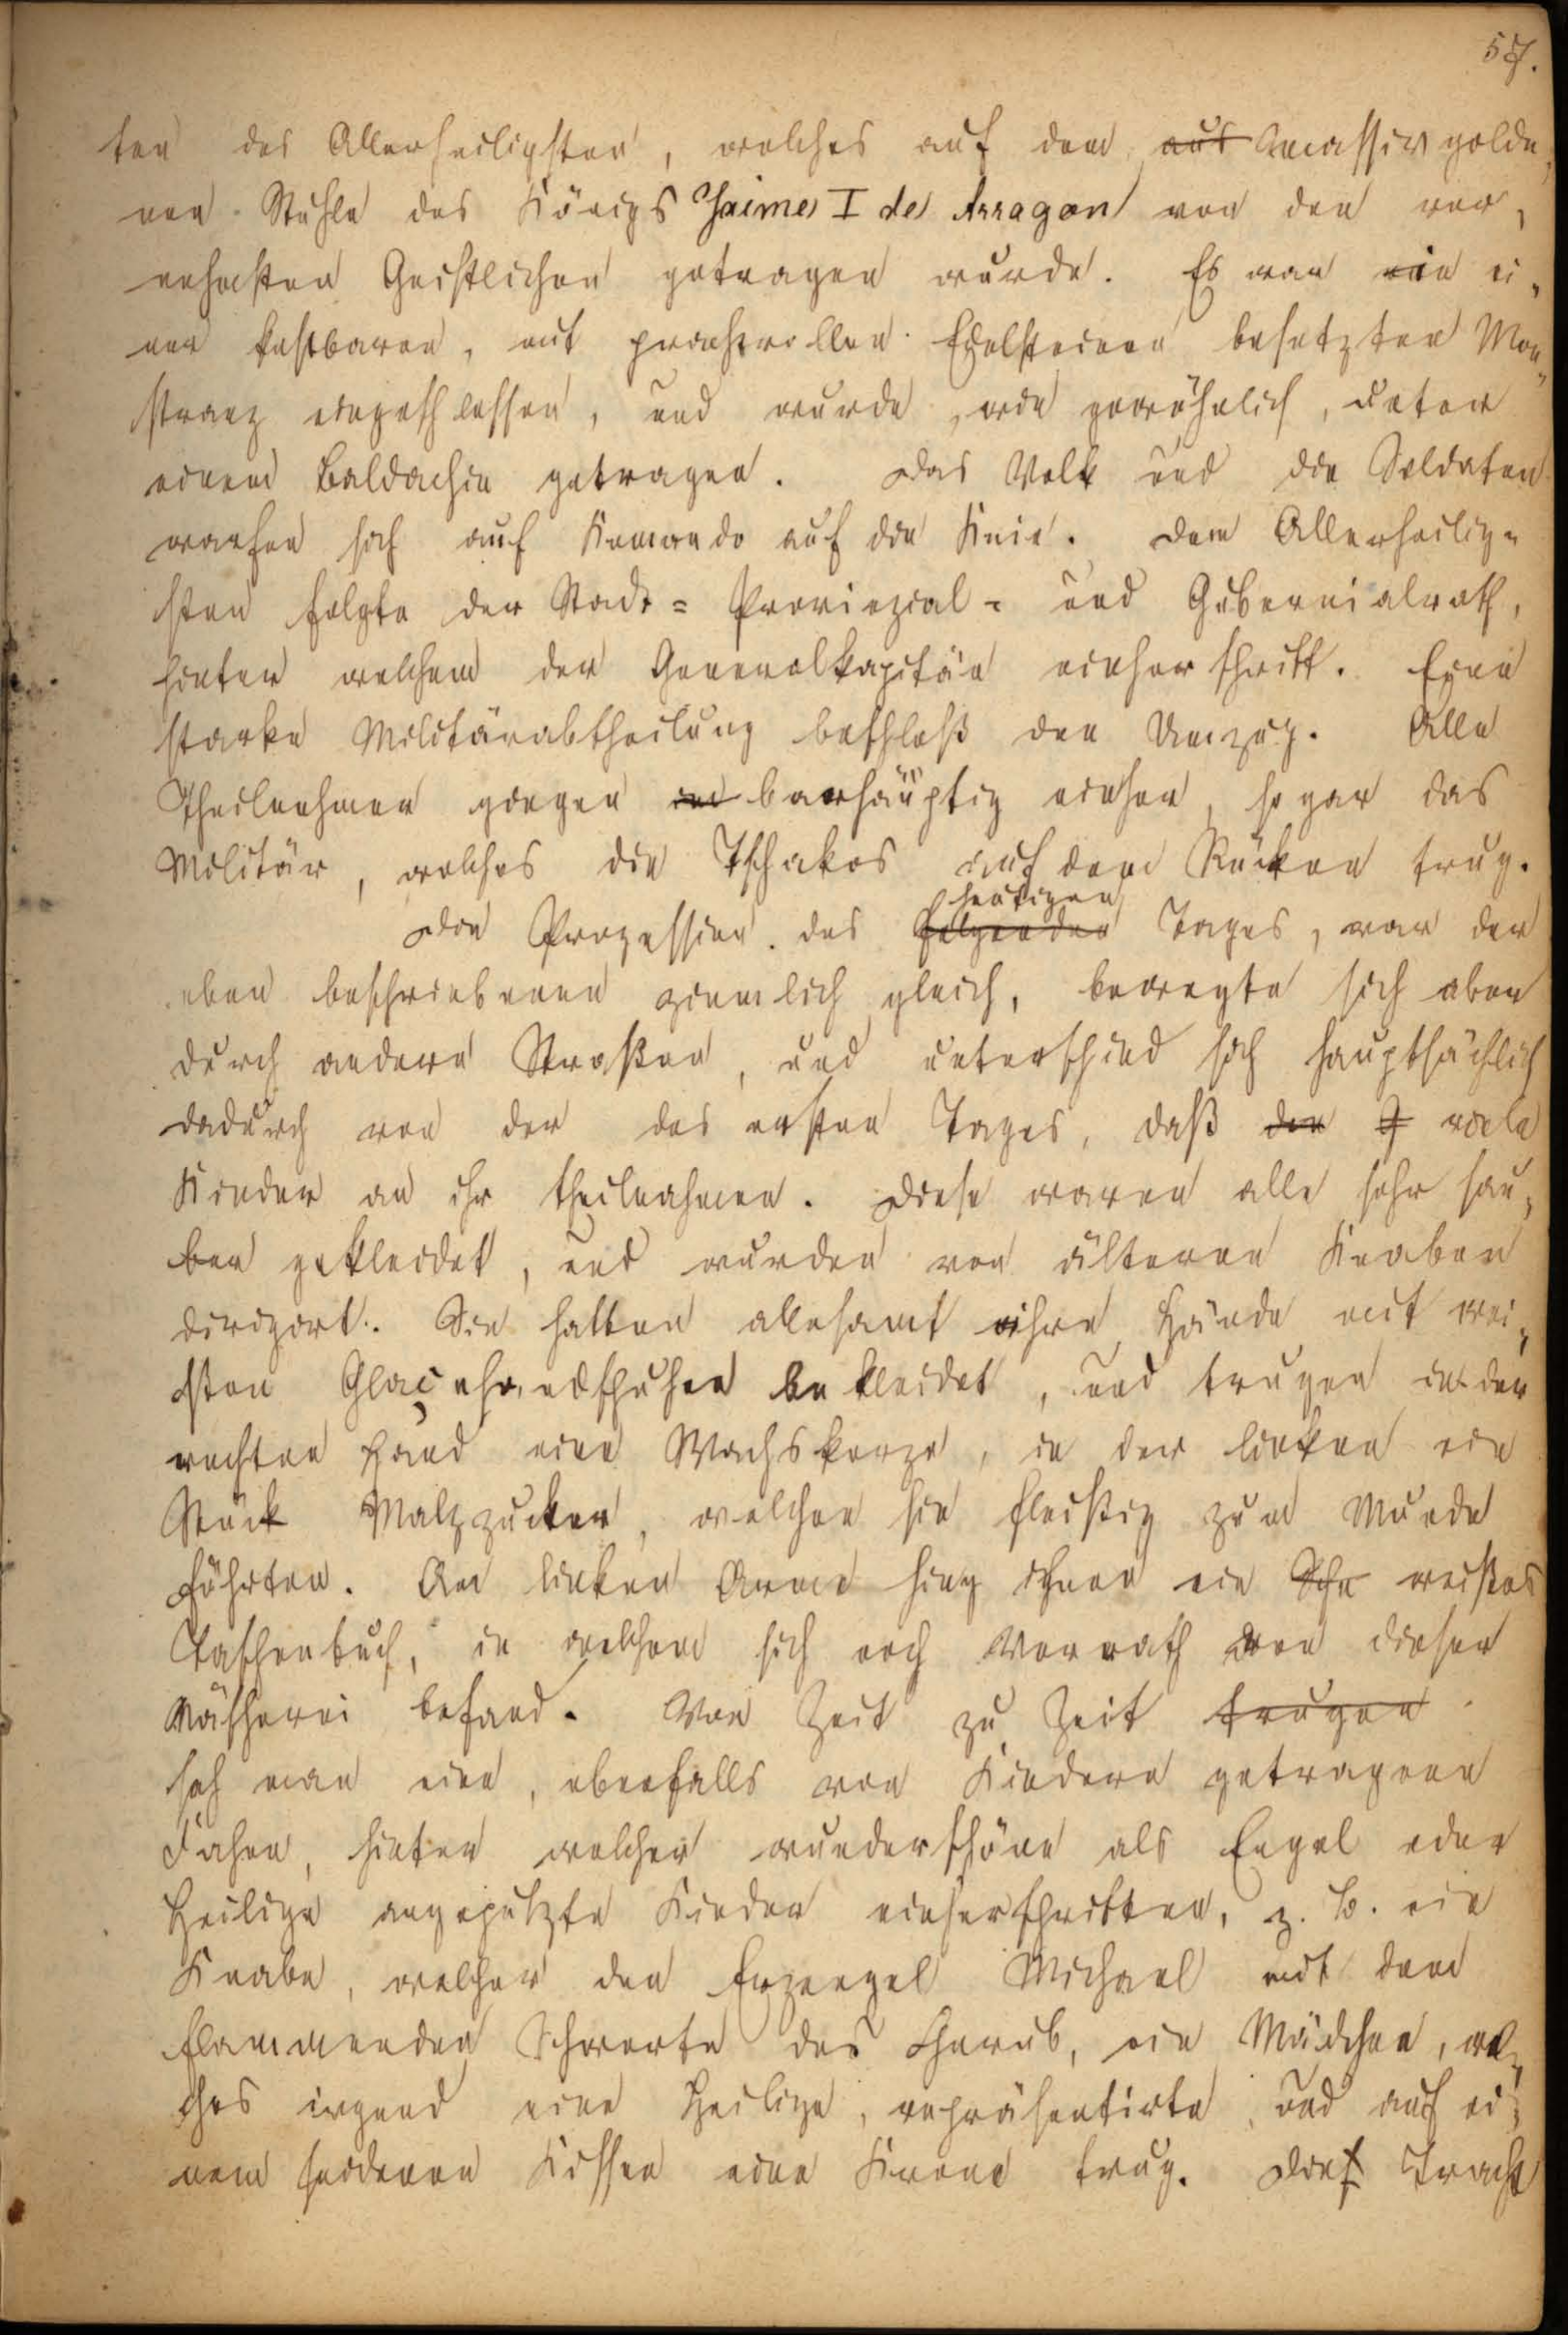 57.
ten des Allerheiligsten, welches auf dem aus massiv golde„
nen Stuhle des Königs Jaime I de Arragon von den vor„
nehmsten Geistlichen getragen wurde. Es war ein ei„
ner kostbaren, mit prachtvollen Edelsteinen besetzten Mon„
stranz eingeschlossen, und wurde, wie gewöhnlich, unter
einem Baldachin getragen. Das Volk und die Soldaten
warfen sich auf Komando auf die Knie. Dem Allerheilig=
sten folgte der Stadt= Provinzial= und Gubernialrath,
hinter welchem der Generalkapitän einher schritt. Eine
starke Militärabtheilung beschloß den Umzug. Alle
Theilnehmer gingen in barhäuptig einher, sogar das
Militär, welches die Tschakos auf dem Rücken trug.
heutigen
Die Prozession des folgenden Tages, war der
eben beschriebenen ziemlich gleich, bewegte sich aber
durch andere Straßen, und unterschied sich hauptsächlich
dadurch von der des ersten Tages, daß der J viele
Kinder an ihr theilnahmen. Diese waren alle sehr sau„
ber gekleidet, und wurden von älteren Knaben
dirigirt. Sie hatten allesamt ihre Hände mit wei„
ßen Glaçehandschuhen bekleidet, und trugen in der
rechten Hand eine Wachskerze, in der linken ein
Stück Malzzucker, welchen sie fleißig zum Munde
führten. Am linken Arme hing ihnen ein Sche weißes
Taschentuch, in welchem sich noch Vorrath von dieser
Näscherei befand. Von Zeit zu Zeit trugen
sah man eine, ebenfalls von Kindern getragene
Fahne, hinter welcher wunderschöne als Engel oder
Heilige angeputzte Kinder einherschritten, z. B. ein
Knabe, welcher den Erzengel Michael mit dem
flammenden Schwerte des Cherub, ein Mädchen, wel„
ches irgend eine Heilige, repräsentirte, und auf ei„
nem seidenen Kissen eine Krone trug. Dies Tracht